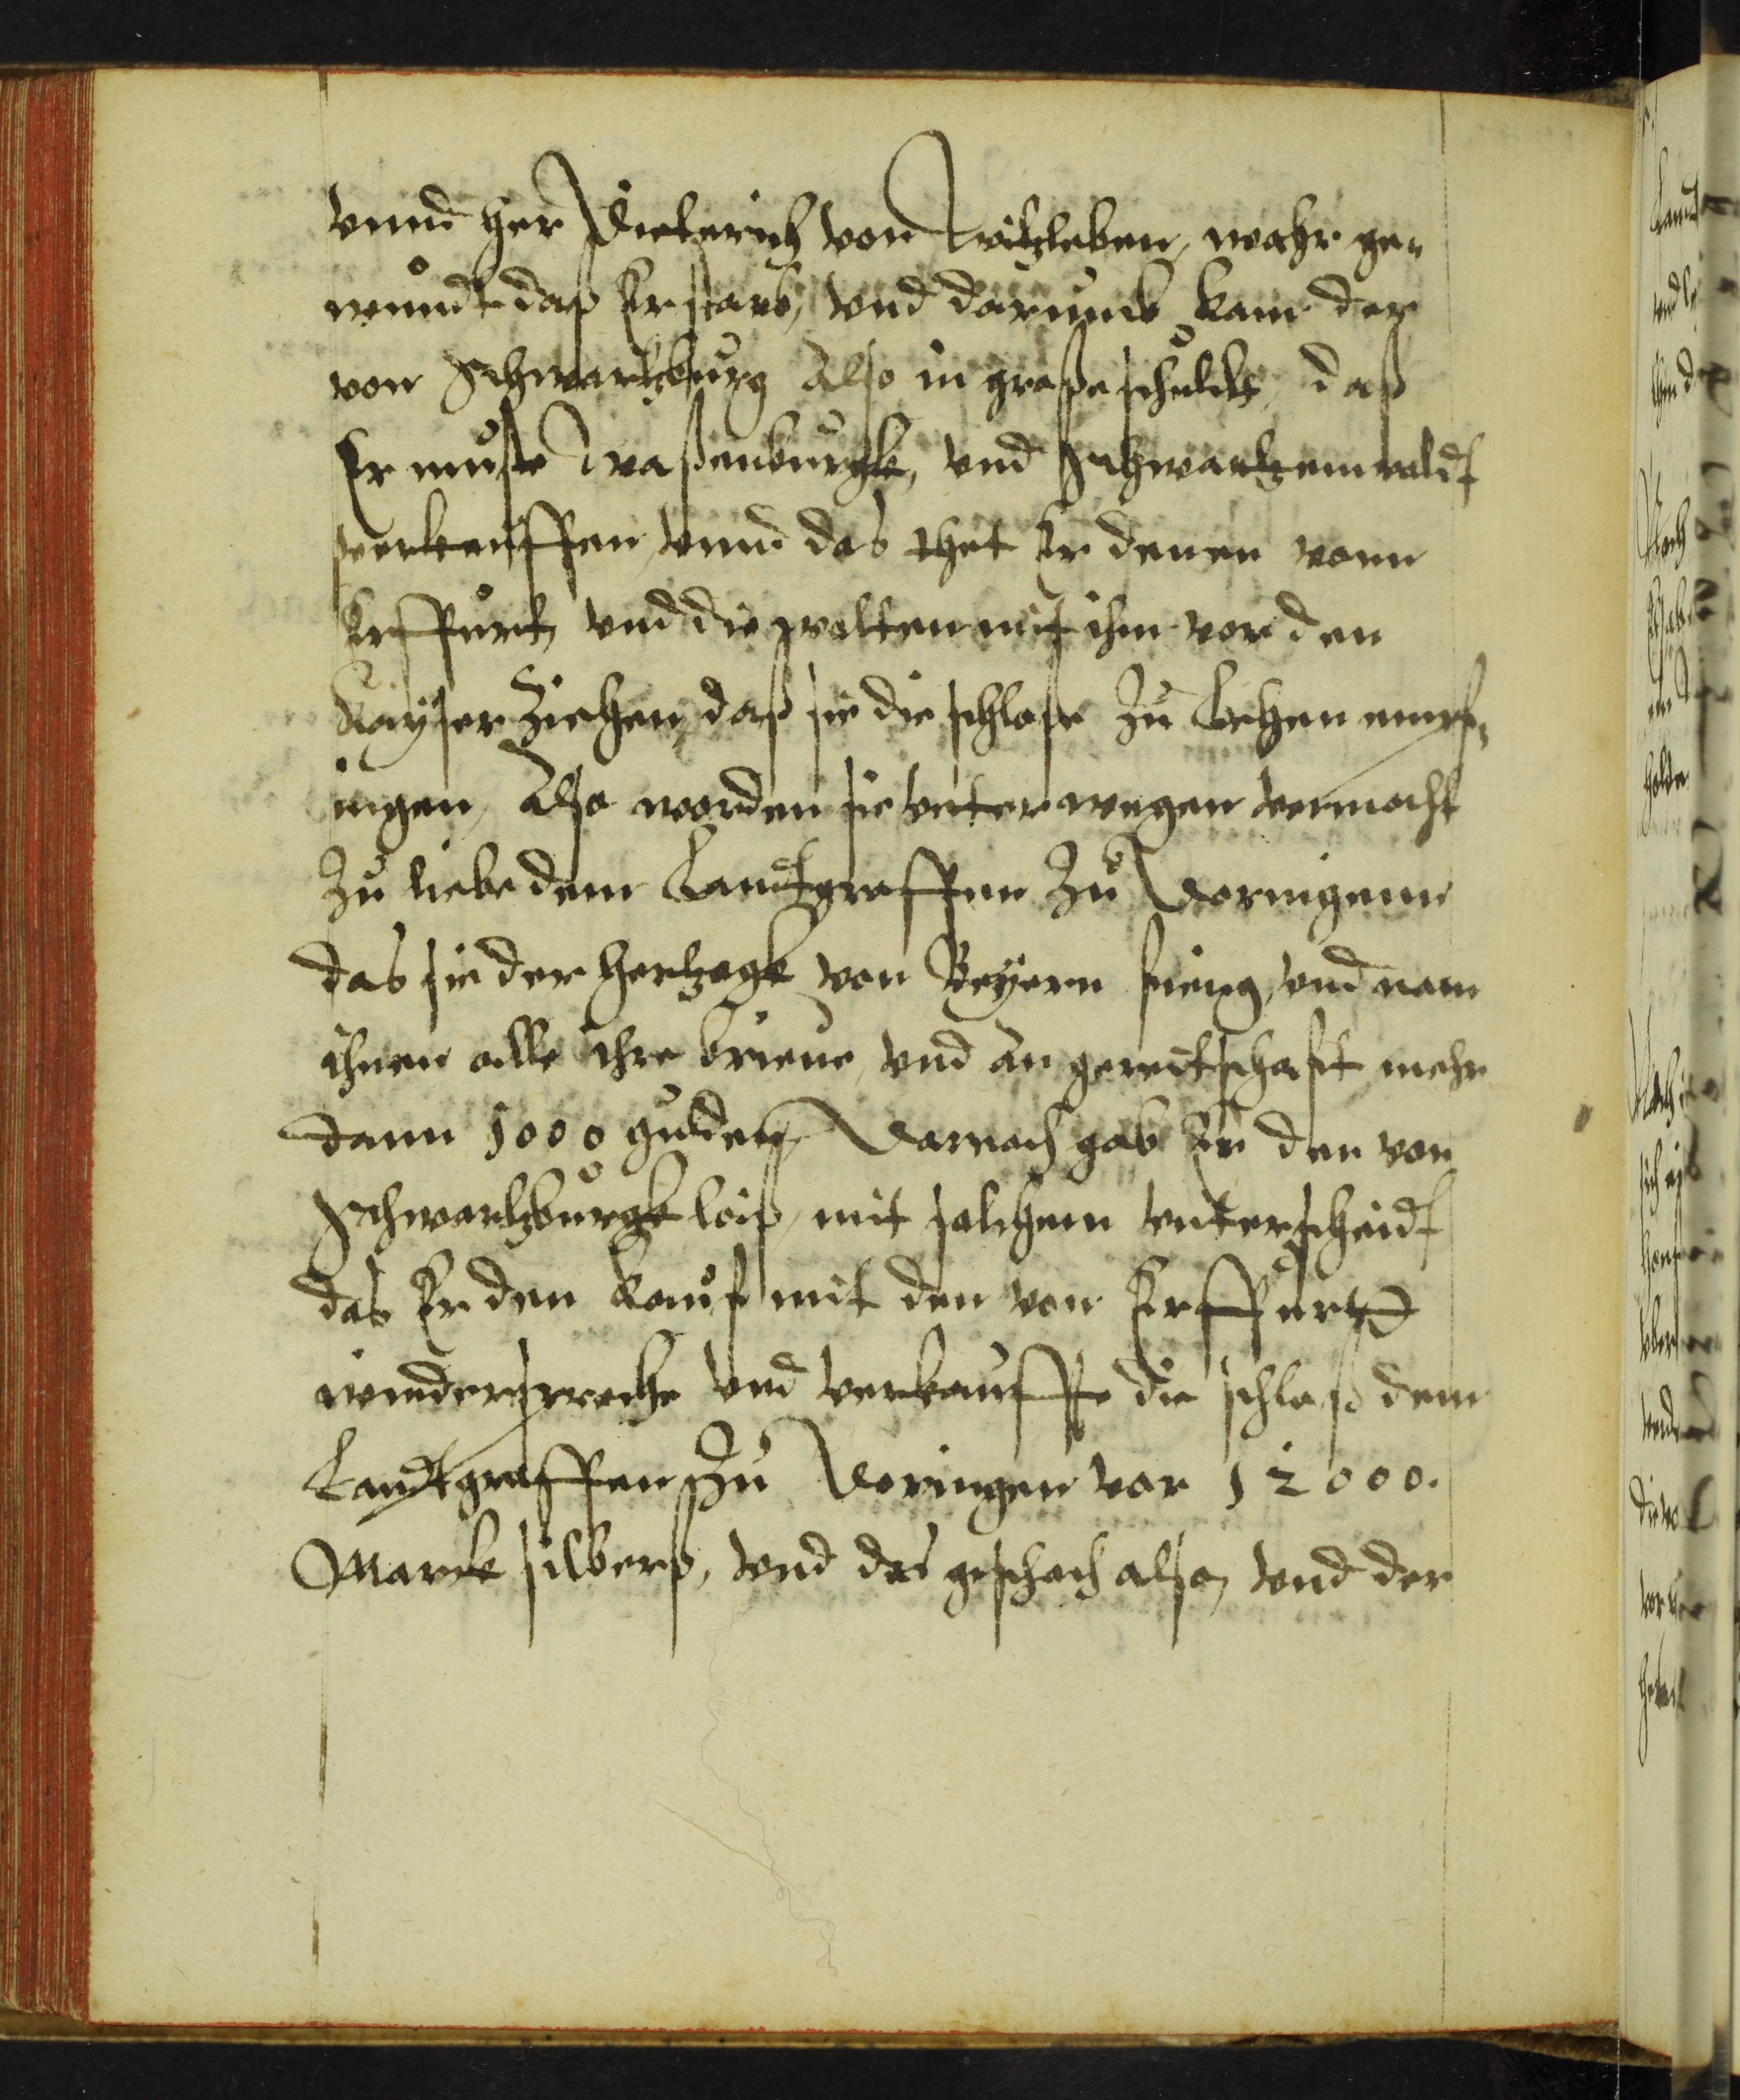 vnnd her Dieterich von Witzleben, wahr ge¬
wundt daß Er starb, vnd darumb kam der
von Schwartzburg Also in große schuldt, daß
Er muste Waßenburgk, vnd Schwartzenwaldt
verkauffen, vnnd das thet Er denen vonn
Erffurt, vnd die wolten mit ihm vor den
Kayser Ziehen, daß sie die schloße Zu Lehen empf¬
ingen, Also worden sie vnterwegen vermacht
Zu liebe dem Landtgraffen Zu Doringenn
das sie der Hertzogk von Beyern fieng, vnd nam
ihnen alle ihre brieue, vnd an gereitschafft mehr
dann 1000 gulden, Darnach gab Er den von
Schwartzburgk loiß, mit solchem vnterscheidt
das Er den kauff mit den von Erffurth
wiedersprechen vnd verkauffte die schloß dem
Landtgraffen Zu Doringen vor 12000.
Marck silberß, vnd das geschach also, vnd der